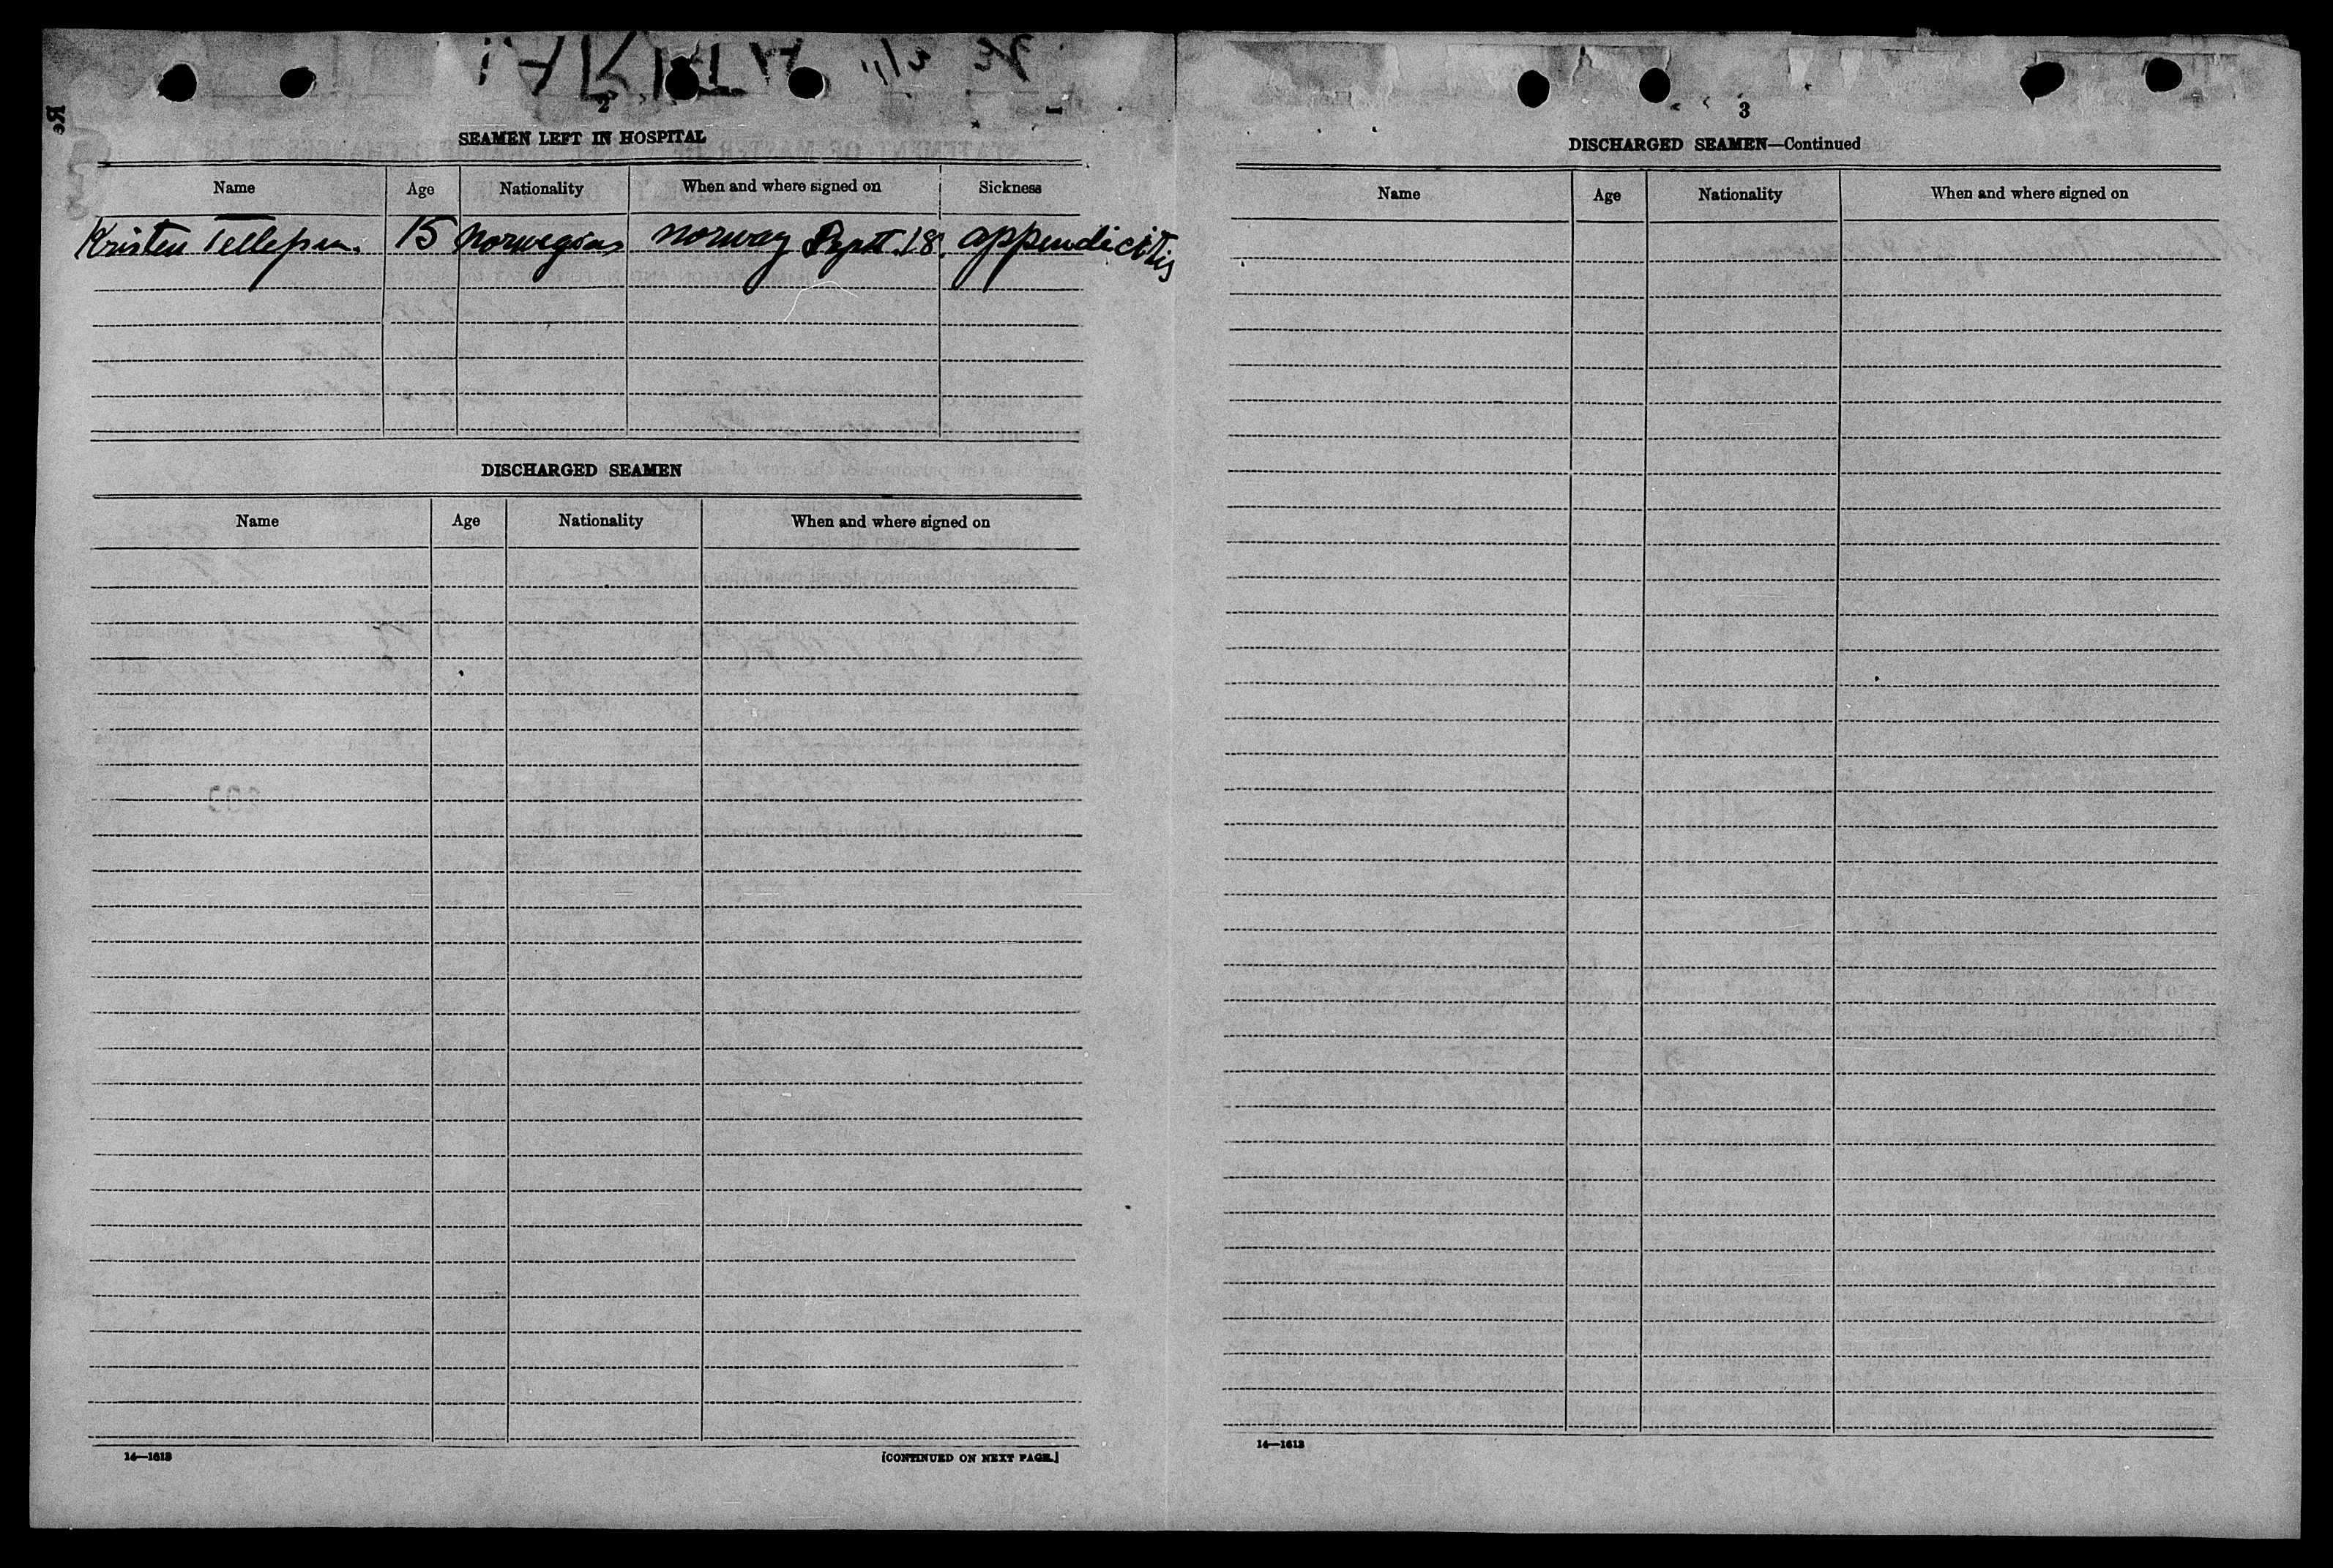 2
SEAMEN LEFT IN HOSPITAL
Name Age Nationality When and where signed on Sickness
Kristen Tellepsen. 15 Norwegian Norway Septt. 18. appendicitis
DISCHARGED SEAMEN
Name Age Nationality When and where signed on
14—1613
[CONTINUED ON NEXT PAGE.]
3
DISCHARGED SEAMEN—Continued
Name Age Nationality When and where signed on
14—1613